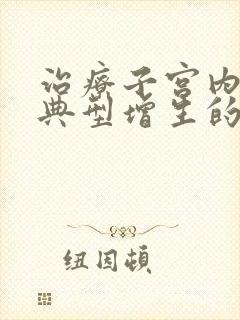 治療子宮内
典型增生的
纽因頓